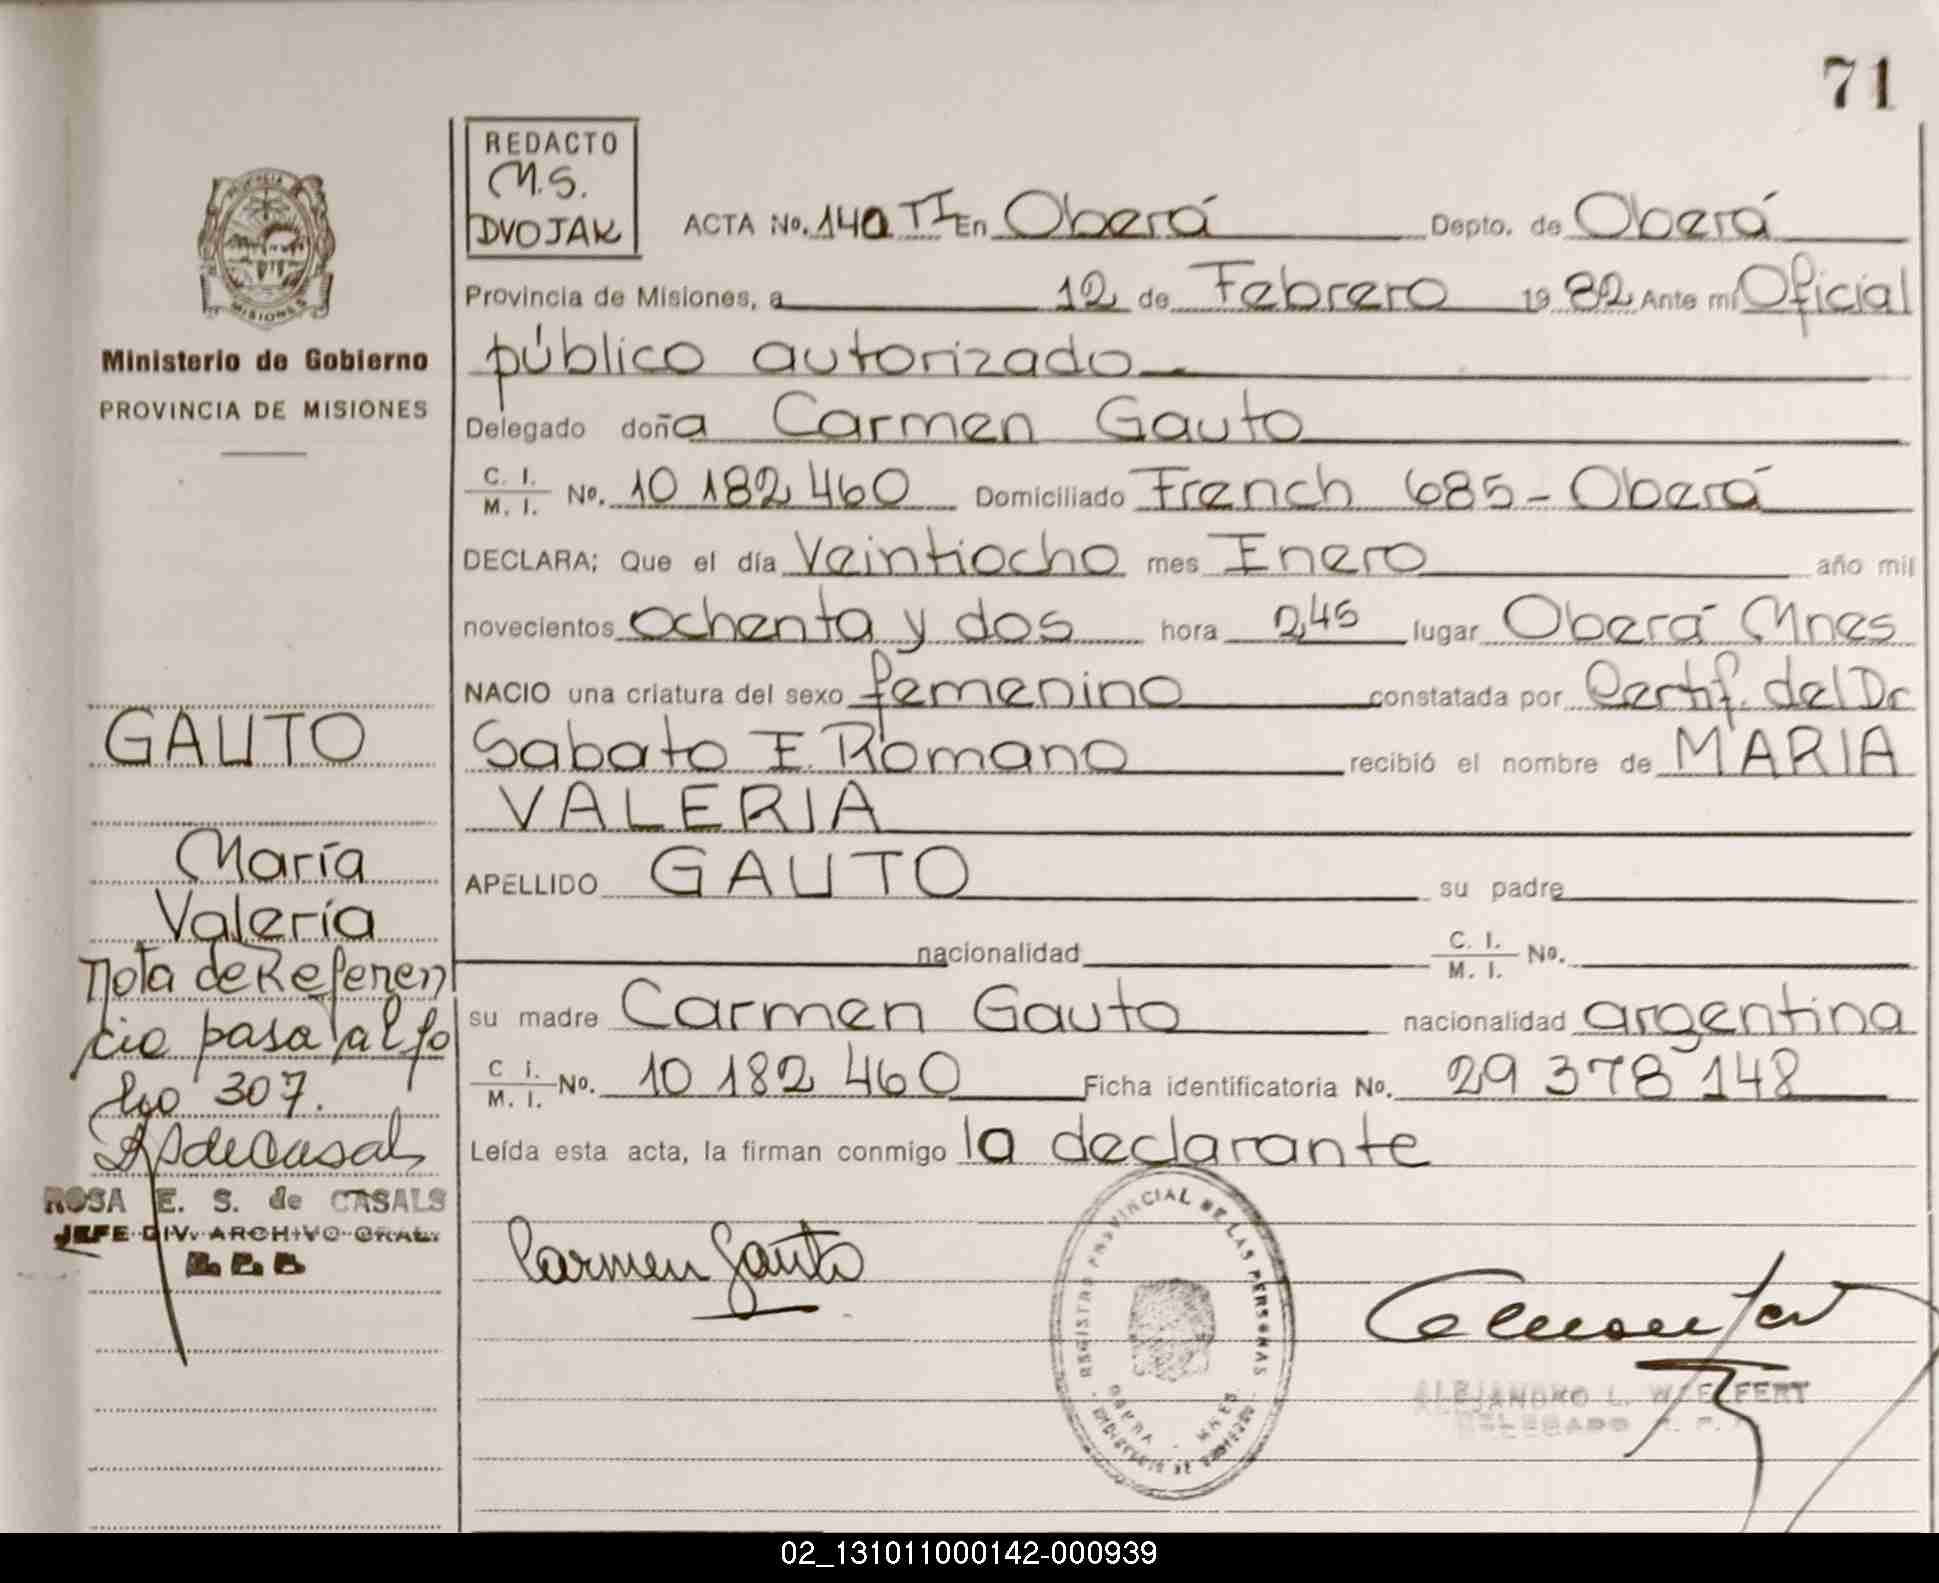 71
REDACTO
M.S.
DVOJAK
ACTA No. 140 TI En Oberá Depto. de Oberá
Provincia de Misiones, a 12 de Febrero 1982 Ante mi Oficial
público autorizado
Delegado doña Carmen Gauto
C. I. / M. I. No. 10 182 460 Domiciliado French 685 - Oberá
DECLARA; Que el día Veintiocho mes Enero año mil
novecientos ochenta y dos hora 2,45 lugar Oberá Mnes
NACIO una criatura del sexo femenino constatada por Certif. del Dr
Sabato E. Romano recibió el nombre de MARIA
VALERIA
APELLIDO GAUTO su padre
nacionalidad C. I. / M. I. No.
su madre Carmen Gauto nacionalidad argentina
C I. / M. I. No. 10 182 460 Ficha identificatoria No. 29 378 148
Leída esta acta, la firman conmigo la declarante
Carmen Gauto
REGISTRO PROVINCIAL DE LAS PERSONAS
OBERA - MNES
MINISTERIO DE GOBIERNO
ALEJANDRO L.
DELEGADO
PROVINCIA
MISIONES
Ministerio de Gobierno
PROVINCIA DE MISIONES
GAUTO
María
Valeria
Nota de Referen
cia pasa al fo
lio 307.
ROSA E. S. de CASALS
JEFE DIV. ARCHIVO GRAL.
02_131011000142-000939